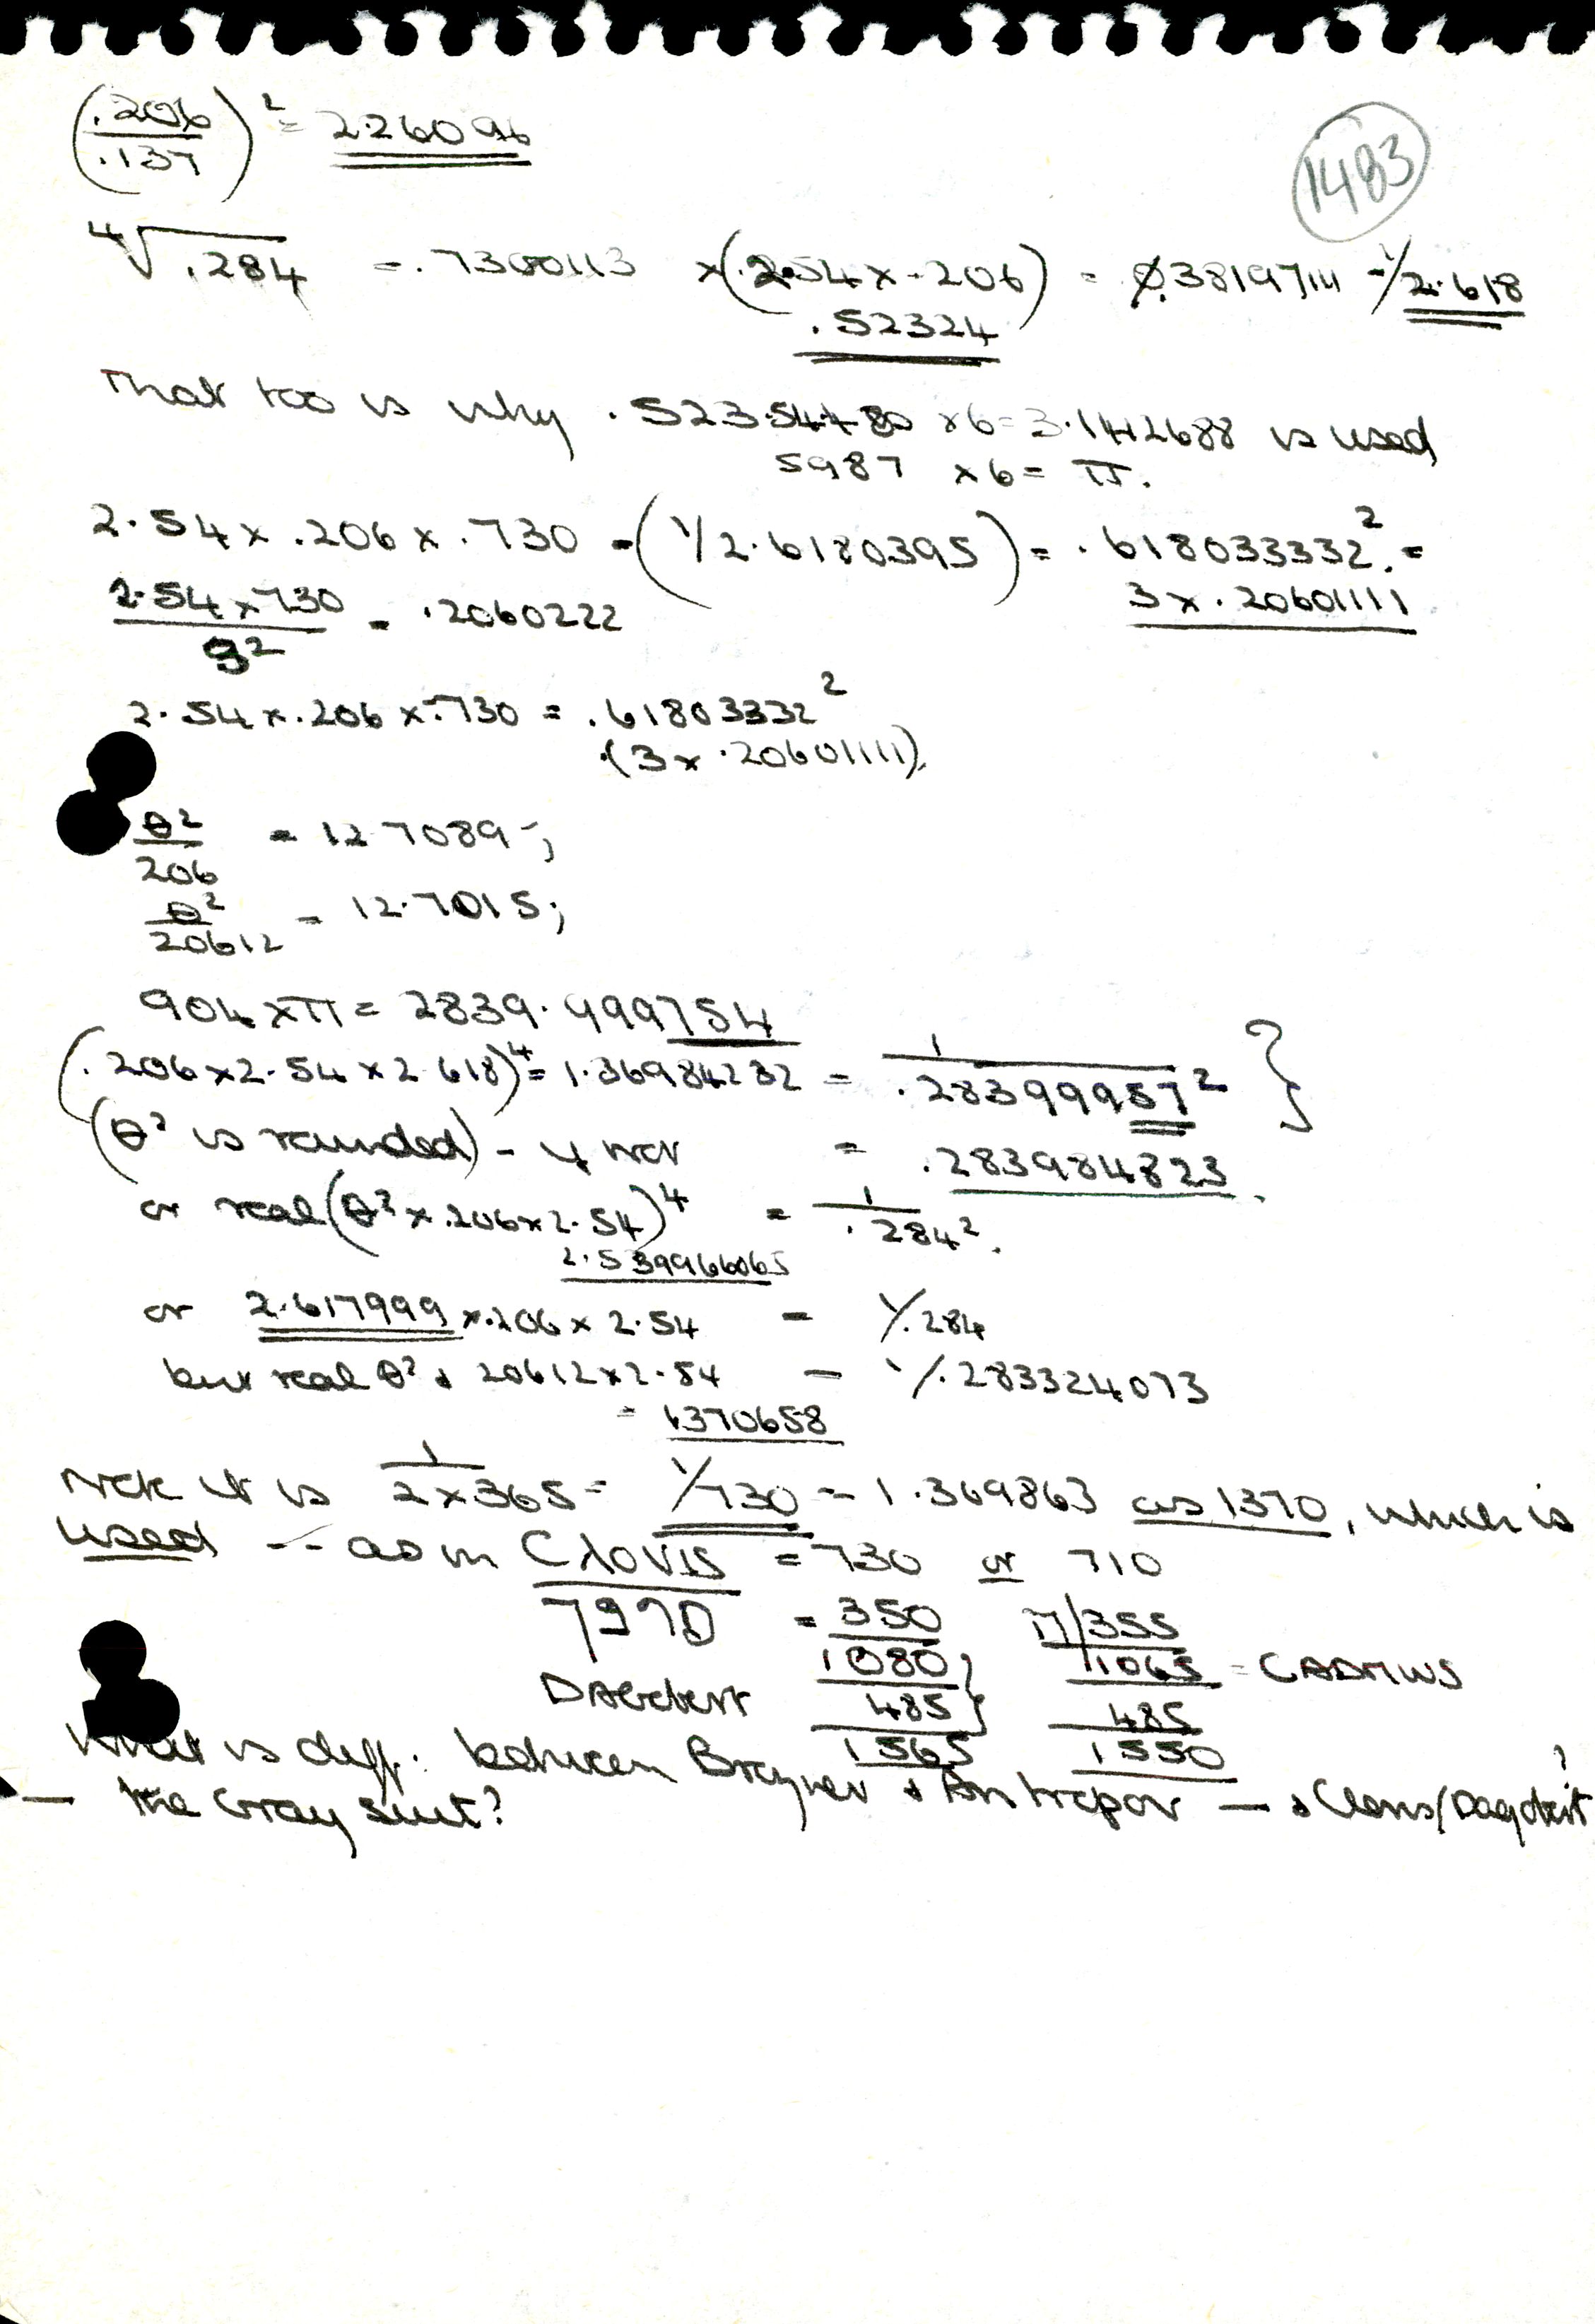 (.206/.137)² = 2.26096
1483
⁴√.284 = .7300113 x (2.54 x .206) = 0.38197111 = 1/2.618
.52324
That too is why .523.54480 x6 = 3.1412688 is used
5987 x 6 = π.
2.54 x .206 x .730 = (1/2.6180395) = .618033332². =
3 x .20601111
2.54 x 730 / 9² = .2060222
2.54 x .206 x .730 = .61803332²
(3 x .20601111).
θ²/206 = 12.7089-;
θ²/20612 = 12.7015;
904 x π = 2839.999754
(.206 x 2.54 x 2.618)⁴ = 1.36984232 = 1/.28399957² }
(θ² is rounded) - if not = .283984823.
or real (θ² x .206 x 2.54)⁴ = 1/.284².
2.539966065
or 2.617999 x .206 x 2.54 = 1/.284
but real θ² & 20612 x 2.54 = 1/.283324073
= 1370658
Note it is 1/2x365 = 1/730 = 1.369863 as 1370, which is
used -- as in CλOVIS = 730 or 710
= 350 π/355
1080 } 1065 = CADMUS
Dagobert 485 } 485
1565 1550
What is diff. between & — &
— the Gray suit?